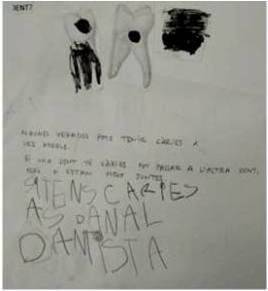 DENT?
ALGUNES VEGADES POTS TENIR CÀRIES A
LES
SI UNA DENT TÉ CÀRIES POT PASSAR A L'ALTRA DENT,
ESTAN MOLT JUNTES
SITENS CARIES
AS DANAL
DANTISTA